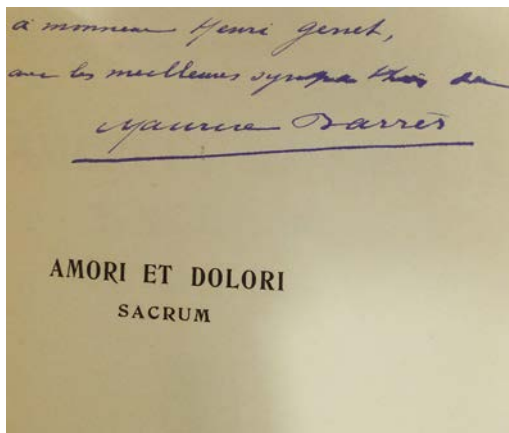 à monsieur Henri Genet,
avec les meilleures sympathies de
Maurice Barrès
AMORI ET DOLORI
SACRUM